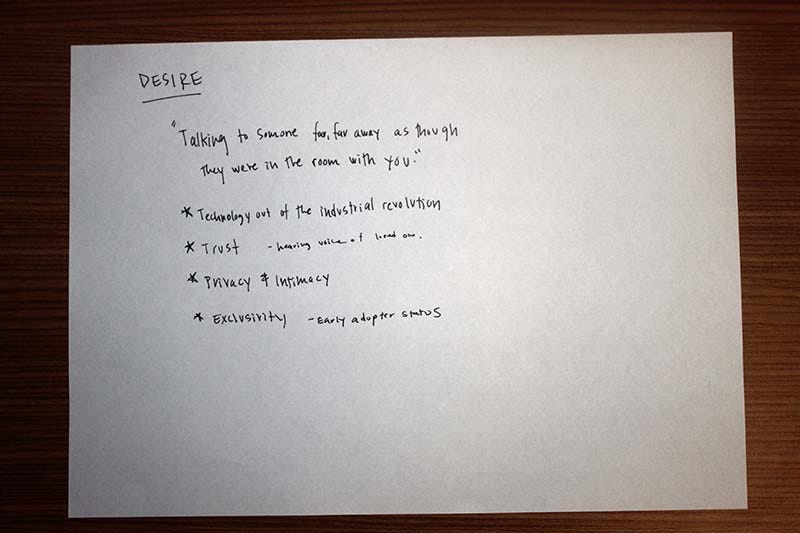 DESIRE
"Talking to someone far, far away as though
they were in the room with you."
* Technology out of the industrial revolution
* Trust - hearing voice of loved one.
* Privacy & Intimacy
* Exclusivity - Early adopter status